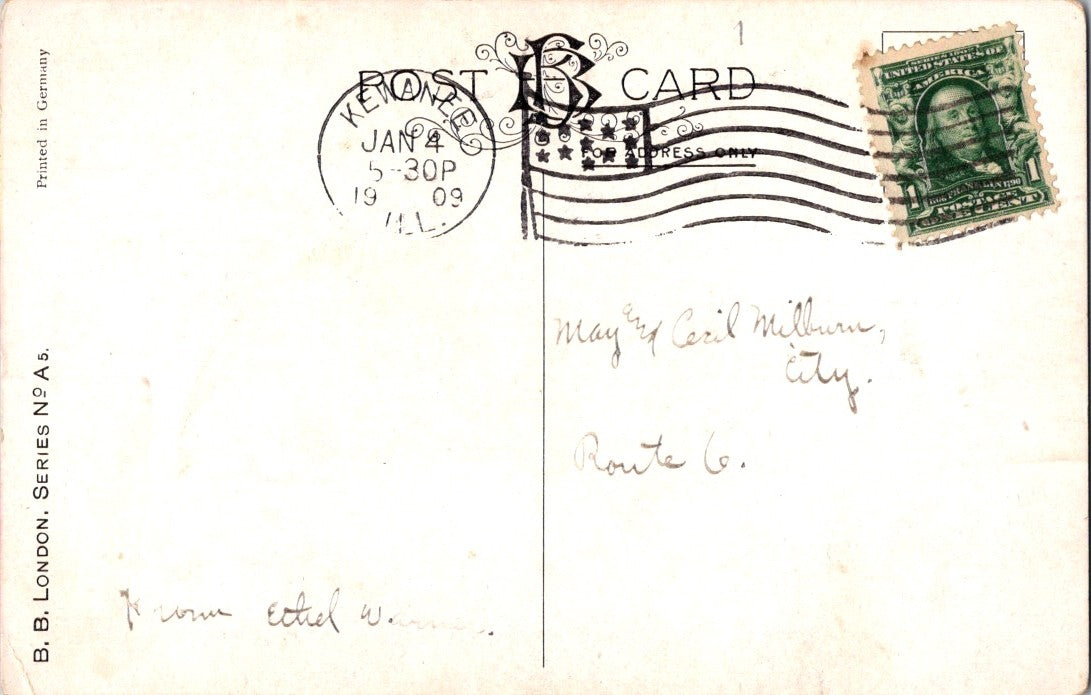 1
POST BB CARD
FOR ADDRESS ONLY
KEWANEE
JAN 4
5-30P
19 09
ILL.
SERIES 1902
UNITED STATES OF
AMERICA
1 FRANKLIN 1
POSTAGE
ONE CENT
Printed in Germany
B. B. LONDON. SERIES Nº A 5.
May and Cecil Milburn,
City.
Route 6.
From Ethel